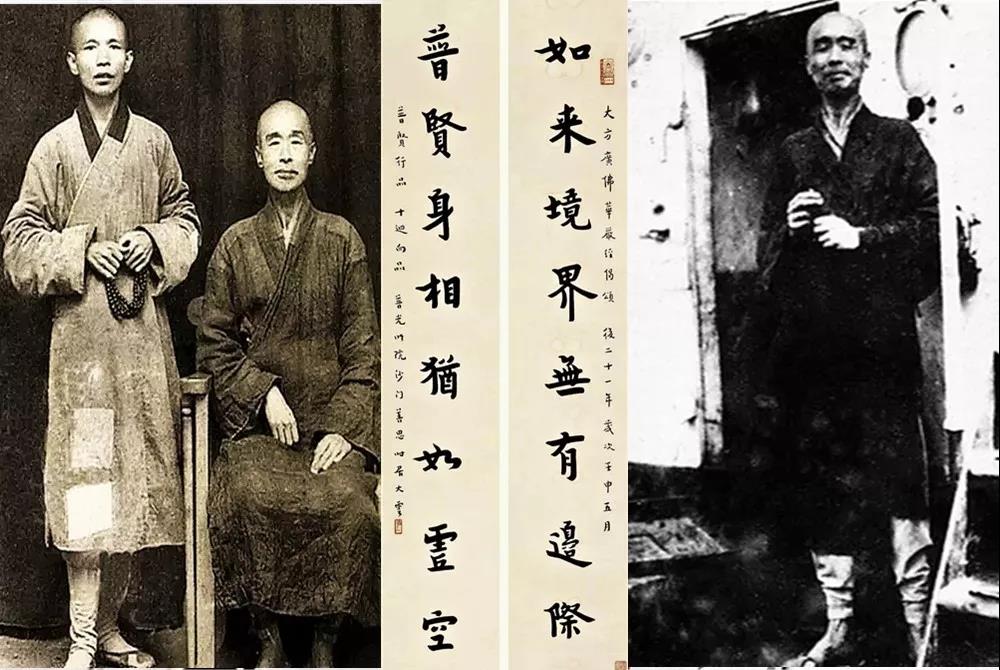 大方廣佛華嚴經偈頌 後二十一年歲次壬申五月
如来境界無有邊際
普賢身相猶如虛空
普賢行品 十迴向品 普光明院沙门善思